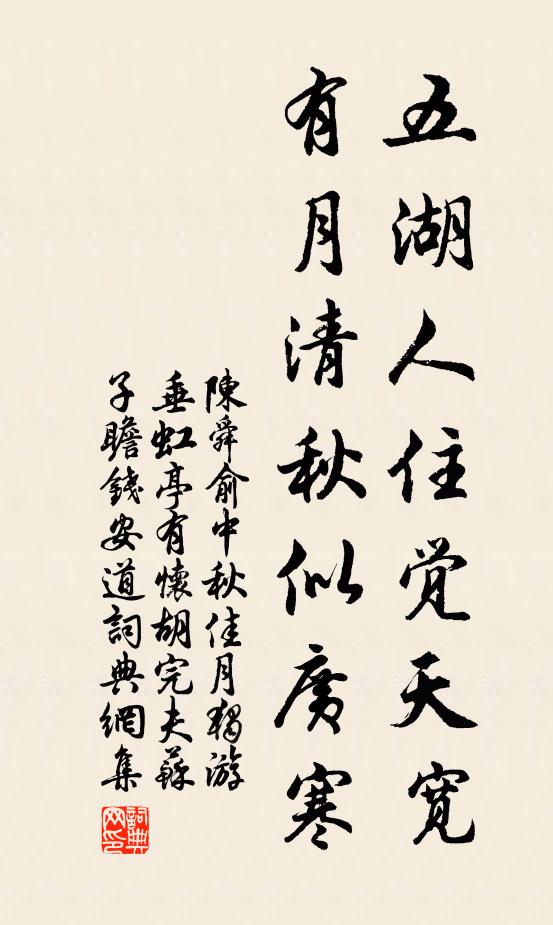 五湖人住觉天宽
有月清秋似廣寒
陳舜俞中秋佳月獨游
垂虹亭有懷胡完夫蘇
子瞻錢安道詞典網集
詞典
网印